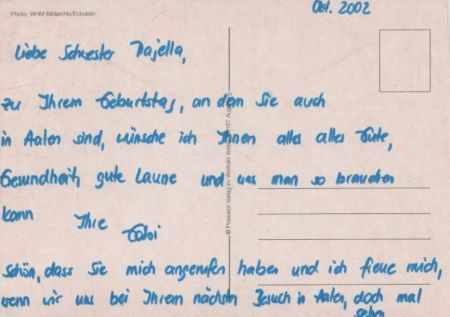 Photo: WHM Bildarchiv/Eckstein
Okt. 2002
Liebe Schwester Najella,
zu Ihrem Geburtstag, an dem Sie auch
in Aalen sind, wünsche ich Ihnen alles alles Gute,
Gesundheit, gute Laune und was man so brauchen
kann Ihre
Gabi
Schön, dass Sie mich angerufen haben und ich freue mich,
wenn wir uns bei Ihrem nächsten Besuch in Aalen, doch mal
sehen
© Praesent Verlag im Weltbild Verlag